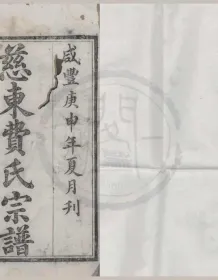 咸豐庚申年夏月刊
慈東費氏宗譜